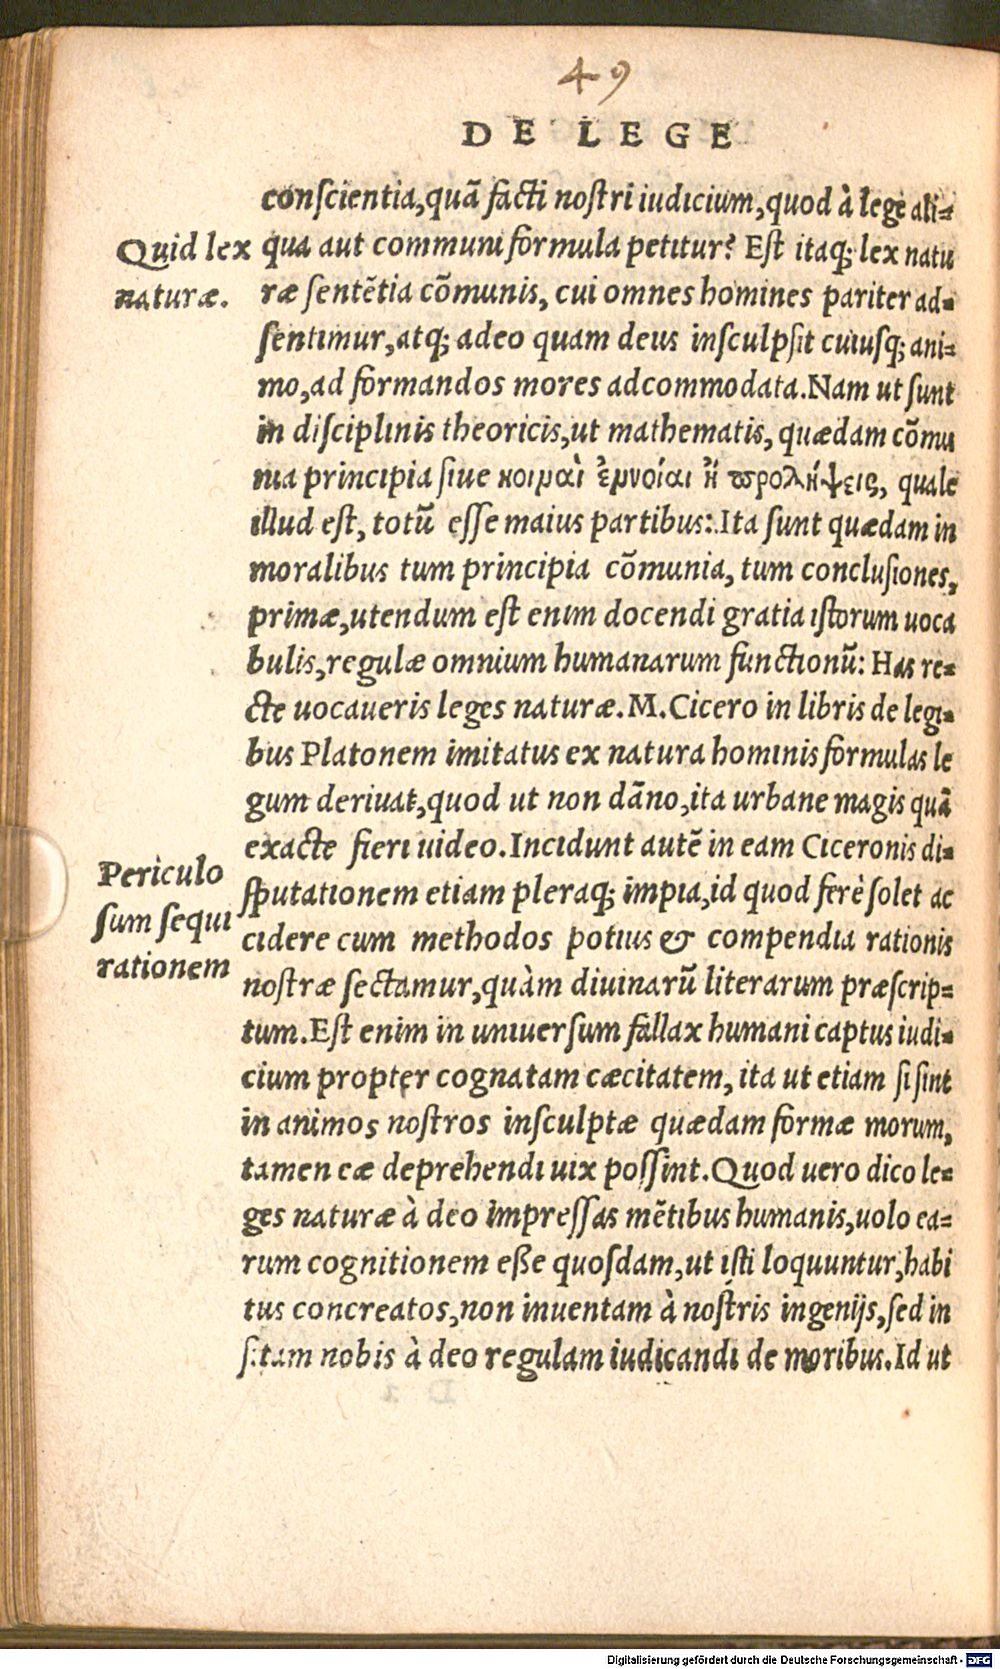 49
DE LEGE
conscientia, quã facti nostri iudicium, quod à lege ali-
Quid lex
naturæ.
qua aut communi formula petitur? Est itaq; lex natu
ræ sentẽtia cõmunis, cui omnes homines pariter ad-
sentimur, atq; adeo quam deus insculpsit cuiusq; ani-
mo, ad formandos mores adcommodata. Nam ut sunt
in disciplinis theoricis, ut mathematis, quædam cõmu
nia principia siue κοιναὶ ἐννοίαι ἢ προλήψεις, quale
illud est, totũ esse maius partibus: Ita sunt quædam in
moralibus tum principia cõmunia, tum conclusiones,
primæ, utendum est enim docendi gratia istorum uoca
bulis, regulæ omnium humanarum functionũ: Has re-
cte uocaueris leges naturæ. M. Cicero in libris de legi-
bus Platonem imitatus ex natura hominis formulas le
gum deriuat, quod ut non dãno, ita urbane magis quã
exacte fieri uideo. Incidunt autẽ in eam Ciceronis di-
Periculo
sum sequi
rationem
sputationem etiam pleraq; impia, id quod ferè solet ac
cidere cum methodos potius & compendia rationis
nostræ sectamur, quàm diuinarũ literarum præscrip-
tum. Est enim in uniuersum fallax humani captus iudi-
cium propter cognatam cæcitatem, ita ut etiam si sint
in animos nostros insculptæ quædam formæ morum,
tamen eæ deprehendi uix possint. Quod uero dico le-
ges naturæ à deo impressas mẽtibus humanis, uolo ea-
rum cognitionem eße quosdam, ut isti loquuntur, habi
tus concreatos, non inuentam à nostris ingenijs, sed in
sitam nobis à deo regulam iudicandi de moribus. Id ut
Digitalisierung gefördert durch die Deutsche Forschungsgemeinschaft - DFG